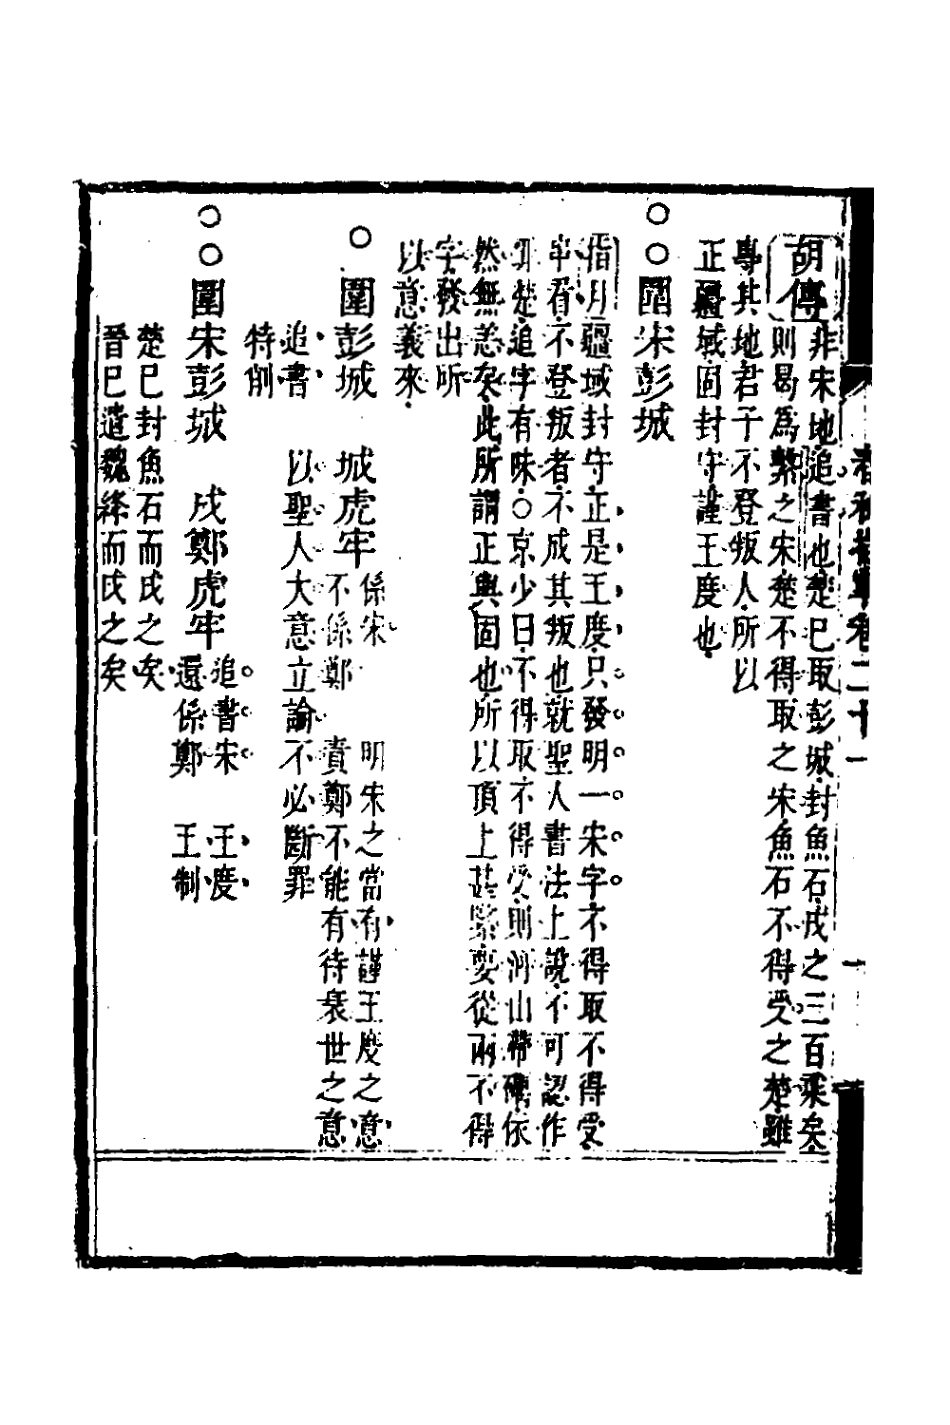 胡傳非宋地追書也楚巳取彭城封魚石戍之三百乘矣
則曷爲繫之宋楚不得取之宋魚石不得受之楚雖
專其地君子不登叛人所以
正疆域固封守謹王度也
○○圍宋彭城
指月疆域封守正是王度只發明一宋字不得取不得受
串看不登叛者不成其叛也就聖人書法上說不可認作
罪楚追字有味○京少曰不得取不得受則河山帶礪依
然無恙矣此所謂正與固也所以頂上甚緊要從兩不得
字發出所
以意義來
○圍彭城 城虎牢 係宋 不係鄭 明宋之當有謹王度之意 責鄭不能有待衰世之意
追書 以聖人大意立論不必斷罪
特削
○○圍宋彭城 戍鄭虎牢 追書宋 還係鄭 王度 王制
楚巳封魚石而戍之矣
晉巳遣魏絳而戍之矣
春秋 卷二十一